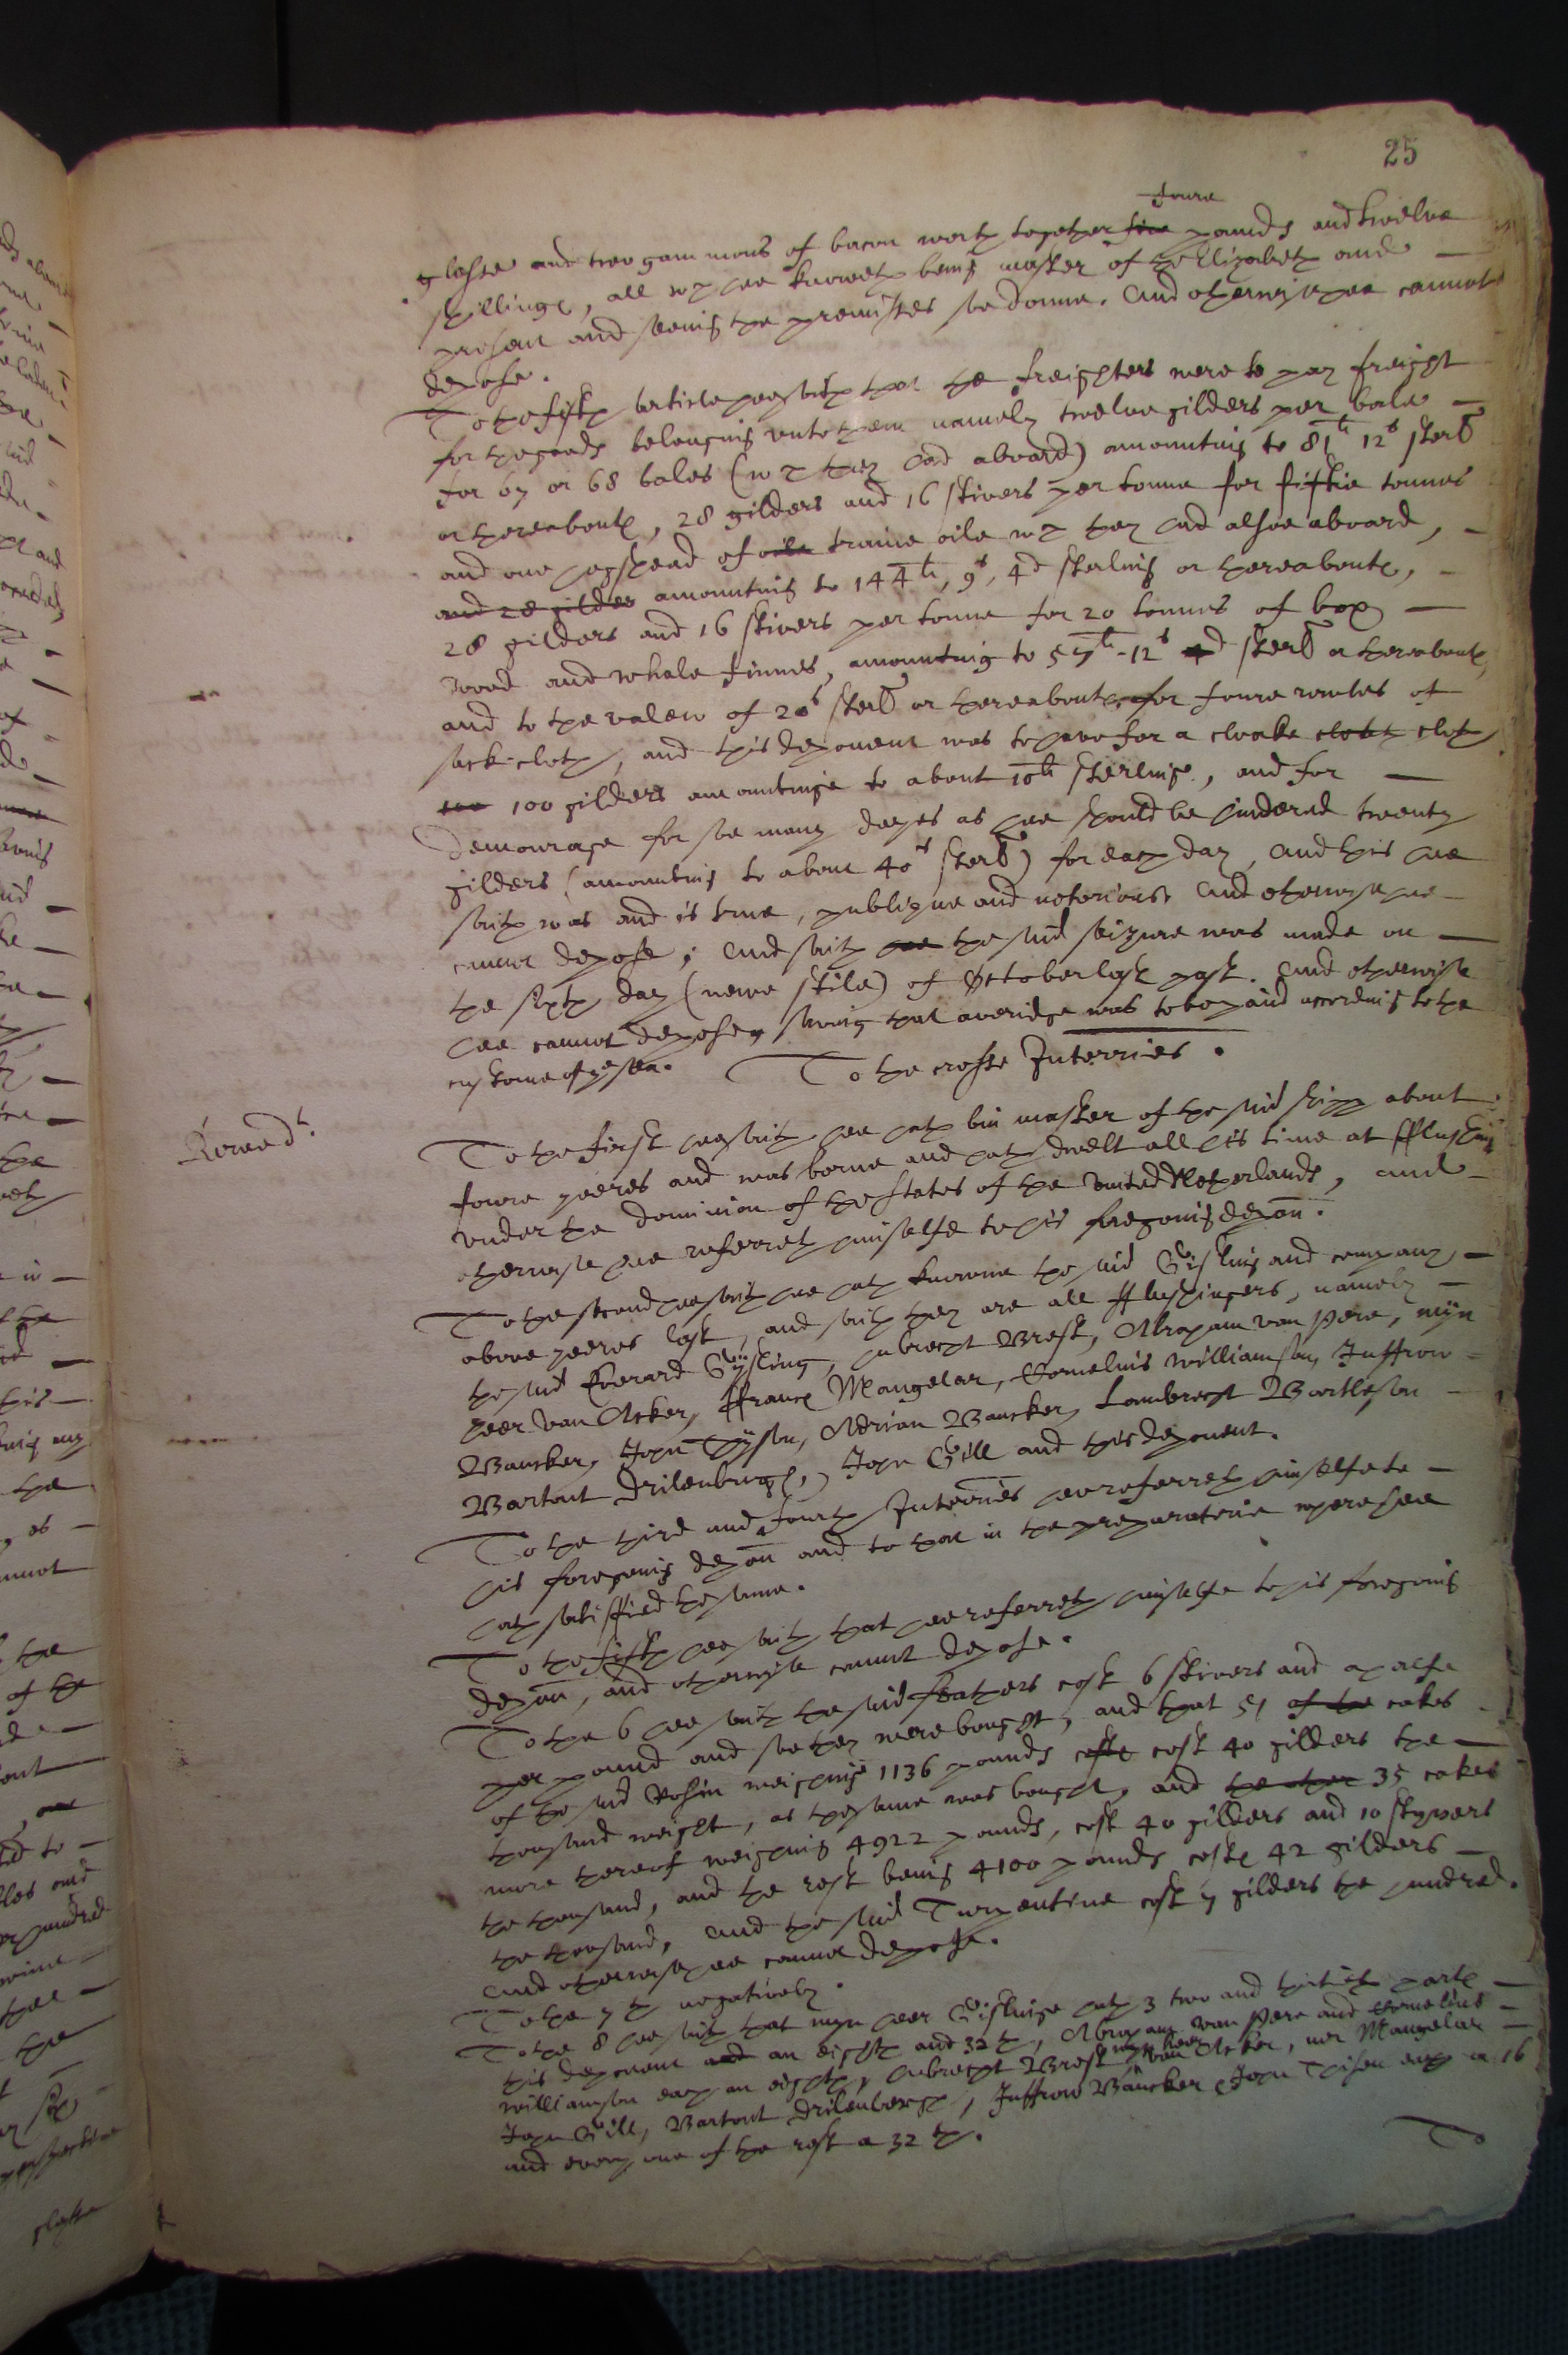 25
foure
glasse and two gammons of bacon worth together five pounds and twelve
shillings, all wch hee knoweth being master of the Elizabeth and
present and seeing the premisses soe donne. And otherwise hee cannot
depose.
To the fifth article hee saith that the freighters were to pay freight
for the goods belonging unto them namely twelve gilders per bale
for 67 or 68 bales (wch they had aboard) amounting to 81li 12s sterl
or thereabouts, 28 gilders and 16 stivers per tonne for fiftie tonnes
and one hogshead of oile traine oile wch they had alsoe aboard,
and 28 gilders amounting to 144li, 9s, 4d sterling or thereabouts,
28 gilders and 16 stivers per tonne for 20 tonnes of box
wood and whale finnes, amounting to 57li-12s 4d sterl or thereabouts,
and to the valew of 20s sterl or thereabouts for foure routes of
sack-cloth, and this deponent was to have for a cloake cloath cloth
100 gilders amountinge to about 10li sterlinge, and for
demourage for soe many dayes as hee should be hindered twenty
gilders (amounting to about 40s sterl) for each day, and this hee
saith was and is true, publique and notorious And otherwise hee
cannot depose; And saith hee the said seizure was made on
the sixth day (newe stile) of October last past. And otherwise
hee cannot depose, saving that averidge was to be paid according to the
custome of the sea.
To the crosse Interries.
Rowe dt.
To the first hee saith hee hath bin master of the said shipp about
foure yeeres and was borne and hath dwelt all his time at fflushing
under the dominion of the States of the United Netherlands, and
otherwise hee referreth himselfe to his foregoing depon.
To the second hee saith hee hath knowne the said Gisling and company
above yeeres last, and saith they are all fflushingers, namely
the said Everard Gijsling, Hubrecht Brest, Abraham van Pere, mijn
heer Van Acker, ffrancs Mangelar, Cornelius Williamson, Juffrow
Bancker, John Thijson, Adrian Bancker, Lambrecht Bartleson
Bartout Drilenburgh, John Gill and this deponent.
To the third and fourth Interries hee referreth himselfe to
his foregoing depon and to that in the preparatorie where hee
hath satisffied the same.
To the fifth hee saith that hee referreth himselfe to his foregoing
depon, and otherwise cannot depose.
To the 6 hee saith the said feathers cost 6 stivers and a halfe
per pound and soe they were bought, and that 51 of the cakes
of the said Rosin weighing 1136 pounds coste cost 40 gilders the
thousand weight, as the same was bought, and the other 35 cakes
more thereof weighing 4922 pounds, cost 40 gilders and 10 stypers
the thousand, and the rest being 4100 pounds coste 42 gilders
the thousand, And the said Turpentine cost 7 gilders the hundred.
And otherwise hee cannot depose.
To the 7th negatively.
To the 8 hee saith that myn heer Gislinge hath 3 two and thirtith parts
this deponent and an eighth and 32th, Abraham van Pere and Cornelius
Williamson each an eighth, Hubrecht Brest myn heer van Acker, mer Mangelar
John Gill, Bartout Drilenbergh, Juffrow Bancker John Thison each a 16
and every one of the rest a 32 th.
To